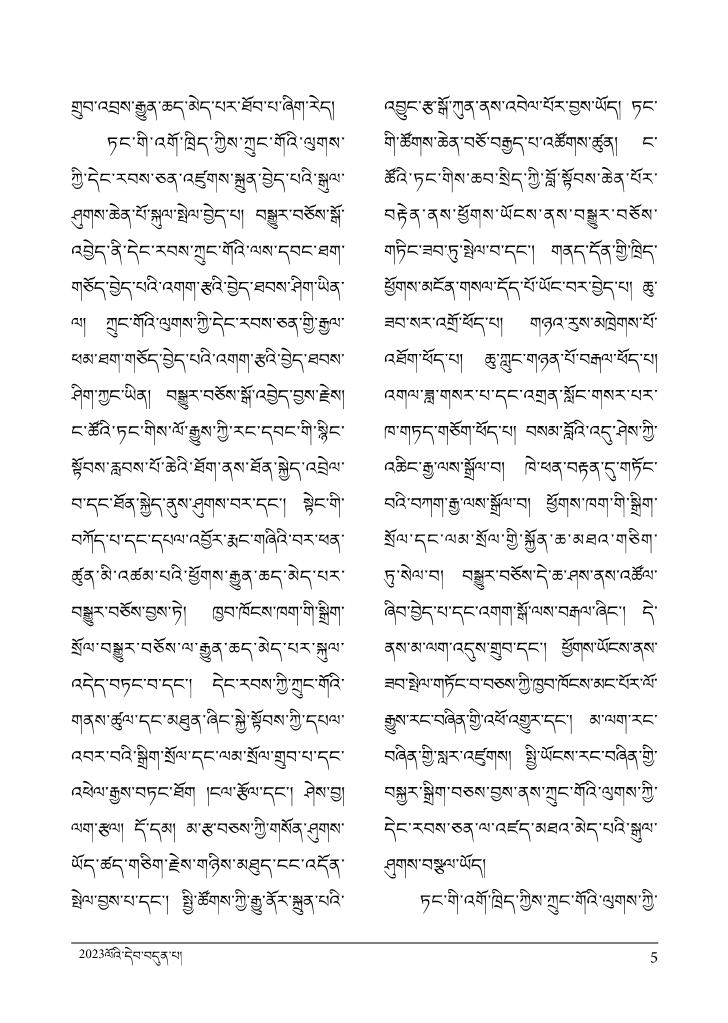 གྲུབ་འབྲས་རྒྱུན་ཆད་མེད་པར་ཐོབ་པ་ཞིག་རེད།
ཏང་གི་འགོ་ཁྲིད་ཀྱིས་ཀྲུང་གོའི་ལུགས་
ཀྱི་དེང་རབས་ཅན་འཛུགས་སྐྲུན་བྱེད་པའི་སྒུལ་
ཤུགས་ཆེན་པོ་སྐུལ་སྤེལ་བྱེད་པ། བསྒྱུར་བཅོས་སྒོ་
འབྱེད་ནི་དེང་རབས་ཀྲུང་གོའི་ལས་དབང་ཐག་
གཅོད་བྱེད་པའི་འགག་རྩའི་བྱེད་ཐབས་ཤིག་ཡིན་
ལ། ཀྲུང་གོའི་ལུགས་ཀྱི་དེང་རབས་ཅན་གྱི་རྒྱལ་
ཕམ་ཐག་གཅོད་བྱེད་པའི་འགག་རྩའི་བྱེད་ཐབས་
ཤིག་ཀྱང་ཡིན། བསྒྱུར་བཅོས་སྒོ་འབྱེད་བྱས་རྗེས།
ང་ཚོའི་ཏང་གིས་ལོ་རྒྱུས་ཀྱི་རང་དབང་གི་སྙིང་
སྟོབས་རླབས་པོ་ཆེའི་ཐོག་ནས་ཐོན་སྐྱེད་འབྲེལ་
བ་དང་ཐོན་སྐྱེད་ནུས་ཤུགས་བར་དང་། སྟེང་གི་
བཀོད་པ་དང་དཔལ་འབྱོར་རྨང་གཞིའི་བར་ཕན་
ཚུན་མི་འཚམ་པའི་ཕྱོགས་རྒྱུན་ཆད་མེད་པར་
བསྒྱུར་བཅོས་བྱས་ཏེ། ཁྱབ་ཁོངས་ཁག་གི་སྒྲིག་
སྲོལ་བསྒྱུར་བཅོས་ལ་རྒྱུན་ཆད་མེད་པར་སྐུལ་
འདེད་བཏང་བ་དང་། དེང་རབས་ཀྱི་ཀྲུང་གོའི་
གནས་ཚུལ་དང་མཐུན་ཞིང་སྐྱེ་སྟོབས་ཀྱི་དཔལ་
འབར་བའི་སྒྲིག་སྲོལ་དང་ལམ་སྲོལ་གྲུབ་པ་དང་
འཕེལ་རྒྱས་བཏང་ཐོག །ངལ་རྩོལ་དང་། ཤེས་བྱ།
ལག་རྩལ། དོ་དམ། མ་རྩ་བཅས་ཀྱི་གསོན་ཤུགས་
ཡོད་ཚད་གཅིག་རྗེས་གཉིས་མཐུད་ངང་འདོན་
སྤེལ་བྱས་པ་དང་། སྤྱི་ཚོགས་ཀྱི་རྒྱུ་ནོར་སྐྲུན་པའི་
འབྱུང་རྩ་སྒོ་ཀུན་ནས་འབེལ་པོར་བྱས་ཡོད། ཏང་
གི་ཚོགས་ཆེན་བཅོ་བརྒྱད་པ་འཚོགས་ཚུན། ང་
ཚོའི་ཏང་གིས་ཆབ་སྲིད་ཀྱི་བློ་སྟོབས་ཆེན་པོར་
བརྟེན་ནས་ཕྱོགས་ཡོངས་ནས་བསྒྱུར་བཅོས་
གཏིང་ཟབ་ཏུ་སྤེལ་བ་དང་། གནད་དོན་གྱི་ཁྲིད་
ཕྱོགས་མངོན་གསལ་དོད་པོ་ཡོང་བར་བྱེད་པ། ཆུ་
ཟབ་སར་འགྲོ་ཕོད་པ། གཉའ་རུས་མཁྲེགས་པོ་
འཐོག་ཕོད་པ། ཆུ་ཀླུང་གཉན་པོ་བརྒལ་ཕོད་པ།
འགལ་ཟླ་གསར་པ་དང་འགྲན་སློང་གསར་པར་
ཁ་གཏད་གཅོག་ཕོད་པ། བསམ་བློའི་འདུ་ཤེས་ཀྱི་
འཆིང་རྒྱ་ལས་སྒྲོལ་བ། ཁེ་ཕན་བརྟན་དུ་གཏོང་
བའི་བཀག་རྒྱ་ལས་སྒྲོལ་བ། ཕྱོགས་ཁག་གི་སྒྲིག་
སྲོལ་དང་ལམ་སྲོལ་གྱི་སྐྱོན་ཆ་མཐའ་གཅིག་
ཏུ་སེལ་བ། བསྒྱུར་བཅོས་དེ་ཆ་ཤས་ནས་འཚོལ་
ཞིབ་བྱེད་པ་དང་འགག་སྒོ་ལས་བརྒལ་ཞིང་། དེ་
ནས་མ་ལག་འདུས་གྲུབ་དང་། ཕྱོགས་ཡོངས་ནས་
ཟབ་སྤེལ་གཏོང་བ་བཅས་ཀྱི་ཁྱབ་ཁོངས་མང་པོར་ལོ་
རྒྱུས་རང་བཞིན་གྱི་འཕོ་འགྱུར་དང་། མ་ལག་རང་
བཞིན་གྱི་སླར་འཛུགས། སྤྱི་ཡོངས་རང་བཞིན་གྱི་
བསྐྱར་སྒྲིག་བཅས་བྱས་ནས་ཀྲུང་གོའི་ལུགས་ཀྱི་
དེང་རབས་ཅན་ལ་འཛད་མཐའ་མེད་པའི་སྒུལ་
ཤུགས་བསྩལ་ཡོད།
ཏང་གི་འགོ་ཁྲིད་ཀྱིས་ཀྲུང་གོའི་ལུགས་ཀྱི་
2023ལོའི་དེབ་བདུན་པ།
5